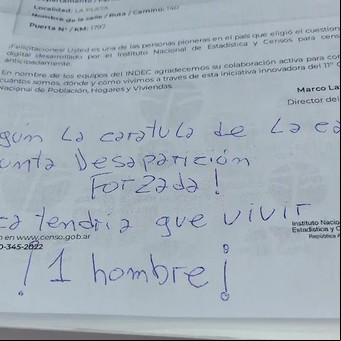 Localidad: LA PLATA
Nombre de la calle / Ruta / Camino: 140
Puerta N° / KM: 1797
¡Felicitaciones! Usted es una de las personas pioneras en el país que eligió el cuestion
digital desarrollado por el Instituto Nacional de Estadística y Censos para cens
anticipadamente.
En nombre de los equipos del INDEC agradecemos su colaboración activa para con
cuántos somos, dónde y cómo vivimos a través de esta iniciativa innovadora del 11° C
Nacional de Población, Hogares y Viviendas.
Marco La
Director del
gun La caratula de La ca
unta Desaparición
Forzada!
ca tendria que vivir
n en www.censo.gob.ar
0-345-2022
Instituto Nacio
Estadística y C
República A
¡1 hombre!